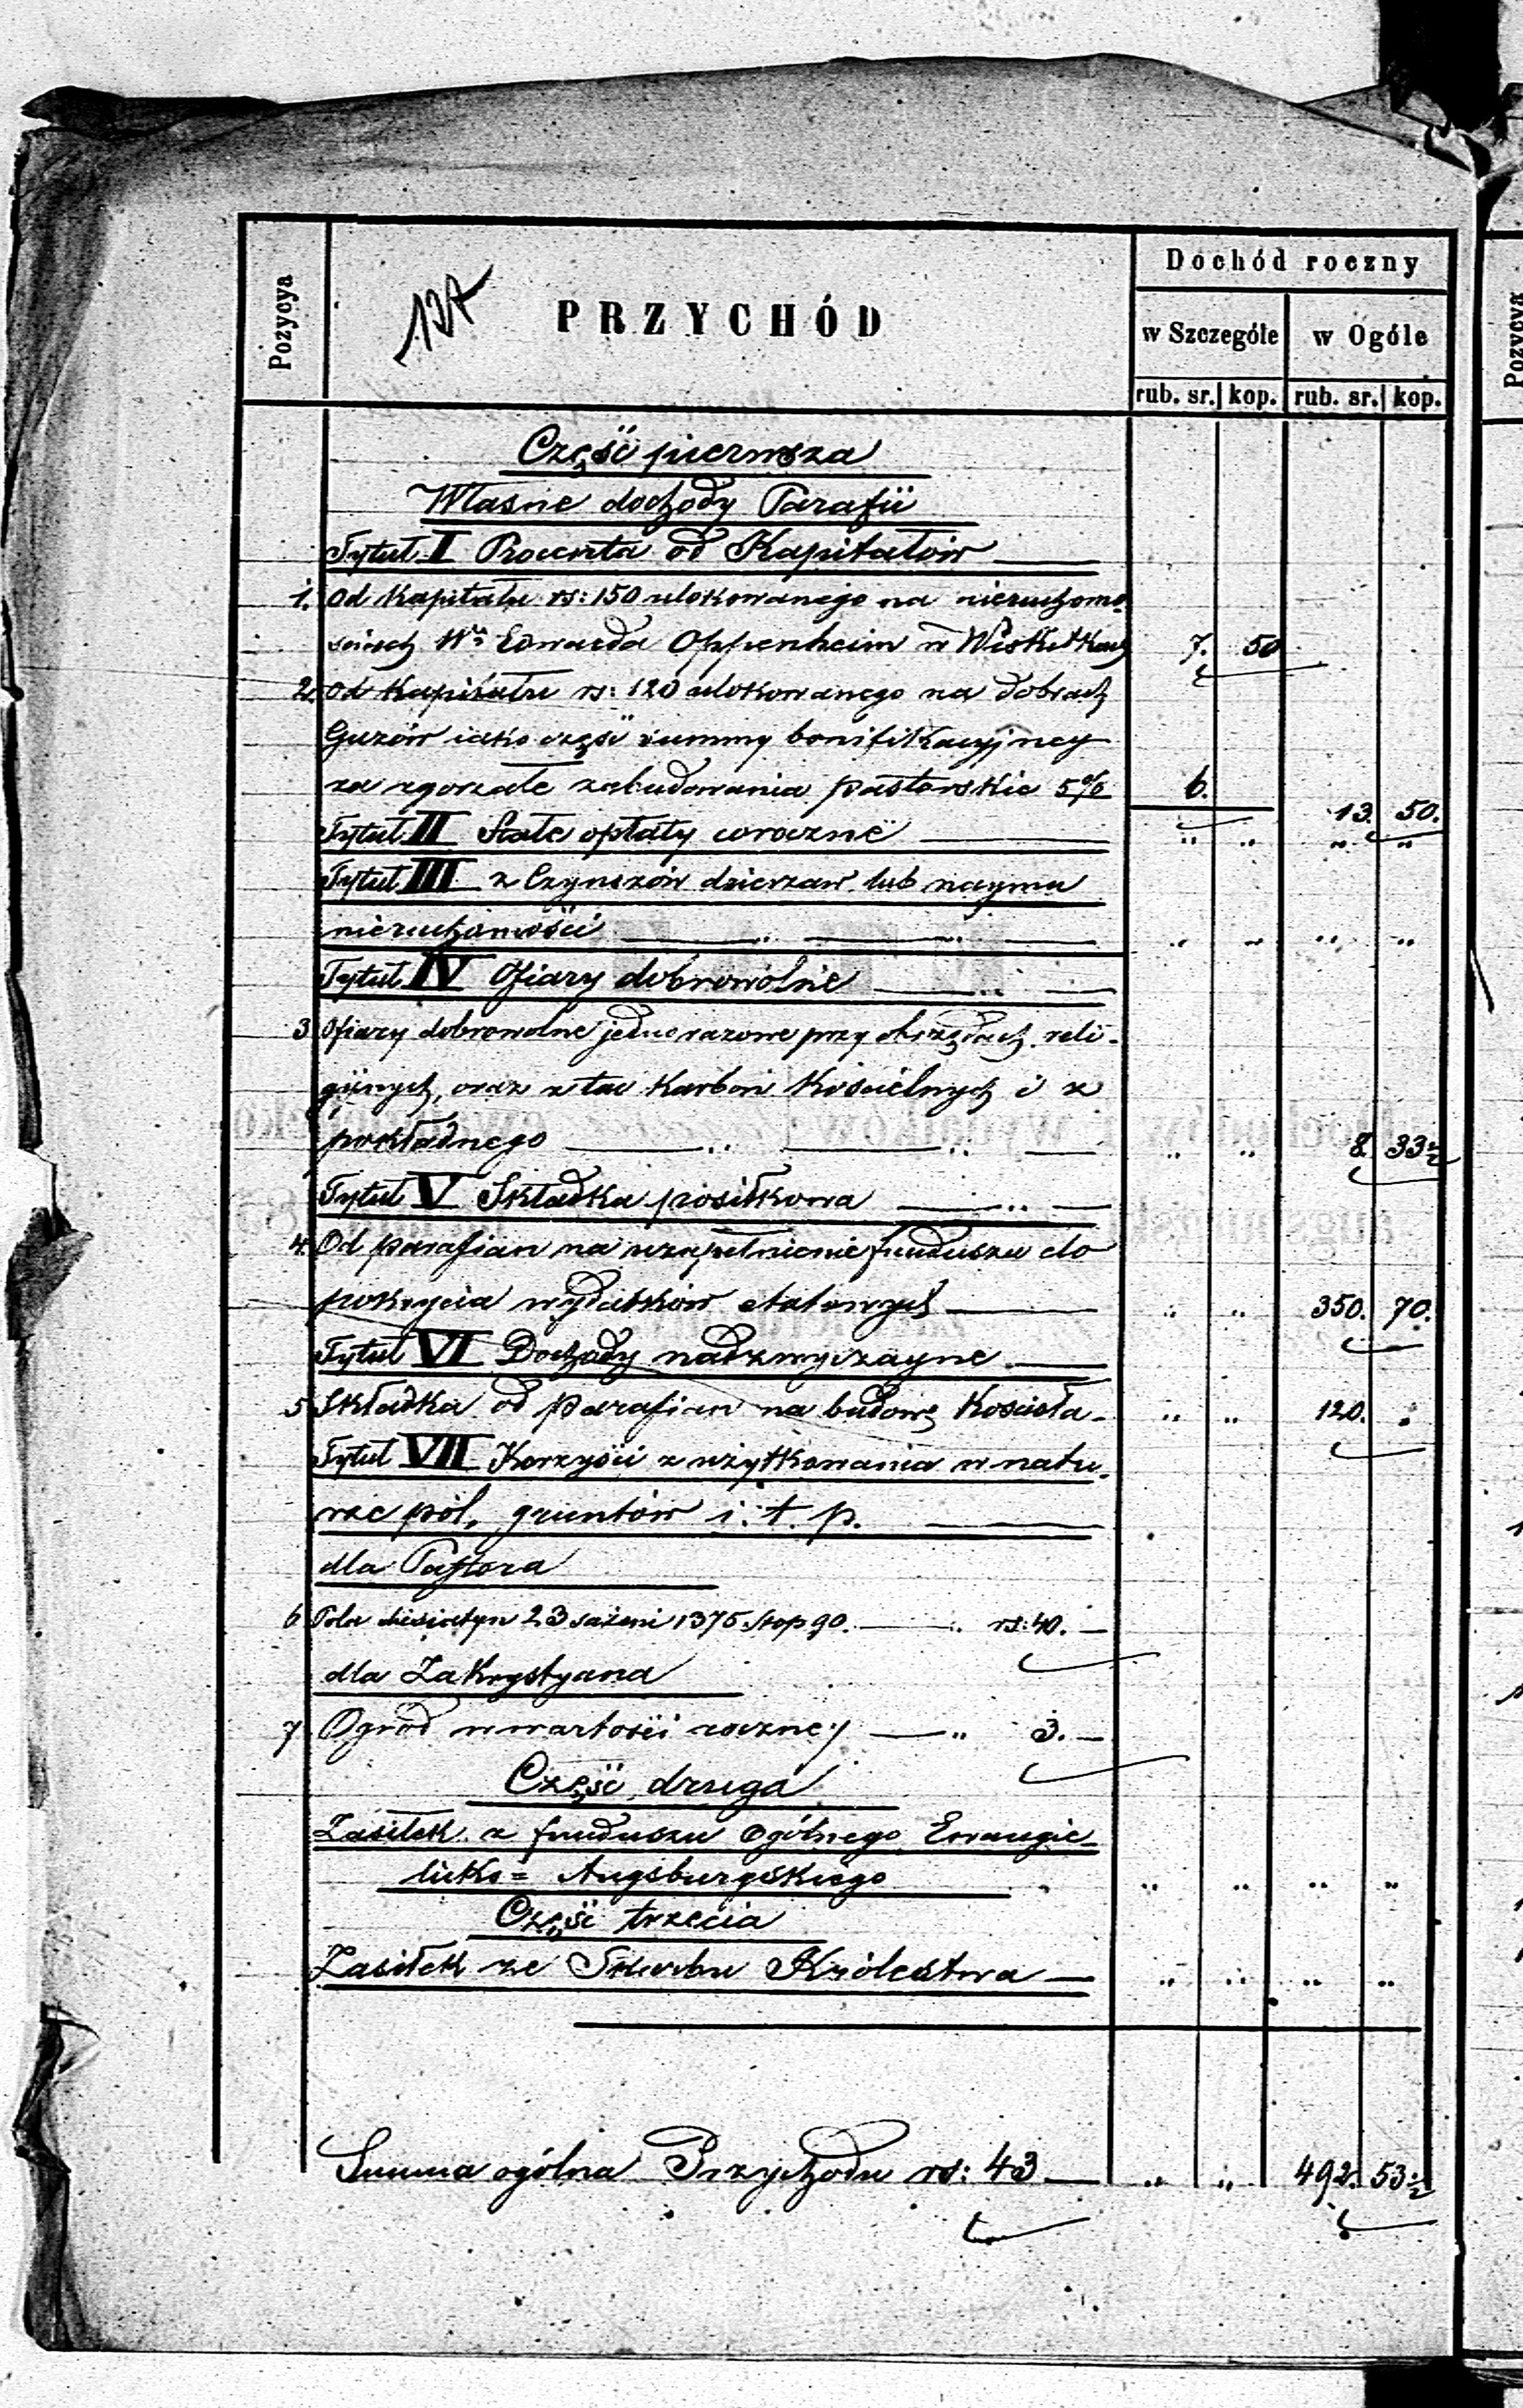 Pozycya
137
PRZYCHÓD
Dochód roczny
w Szczególe
w Ogóle
rub. sr. kop. rub. sr. kop.
Część pierwsza
Własne dochody Parafii
Tytuł I Procenta od Kapitałów
1. Od Kapitału rs: 150 ulokowanego na nieruchomo
ściach Wo Edwarda Oppenheim w Wiskitkach 7. 50
2. Od Kapitału rs: 120 ulokowanego na dobrach
Guzów iako część summy bonifikacyjney
za zgorzałe zabudowania pastorskie 5% 6. 13. 50.
Tytuł II Stałe opłaty coroczne
Tytuł III z Czynszów dzierzaw lub naymu
nieruchomości
Tytuł IV Ofiary dobrowolne
3 Ofiary dobrowolne jednorazowe przy obrzędach reli-
gijnych, oraz z tac Karbon Kościelnych i z
pokładnego 8. 33½
Tytuł V Składka posiłkowa
4. Od parafian na uzupełnienie funduszu do
pokrycia wydatków etatowych 350. 70.
Tytuł VI Dochody nadzwyczayne
5 Składka od parafian na budowę Kościoła. 120.
Tytuł VII Korzyści z użytkowania w natu-
rze pól, gruntów i. t. p.
dla Pastora
6 Pola diesiatyn 23 sażeni 1375. stop 90. rs: 40.
dla Zakrystyana
7. Ogród w wartości roczney 3.
Część druga
Zasiłek z funduszu Ogólnego Ewangie-
licko = Augsburgskiego
Część trzecia
Zasiłek ze Skarbu Królestwa
Summa ogólna Przychodu rs: 43 492. 53½
Pozycya